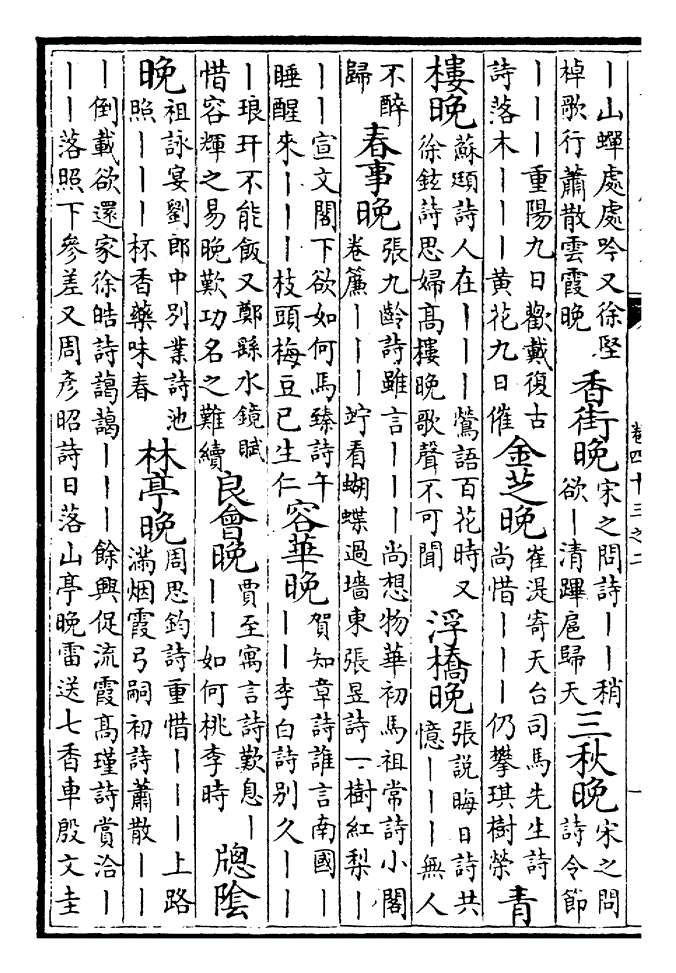 ｜山蟬處處吟又徐堅
棹歌行蕭散雲霞晚
香街晚
宋之問詩｜｜稍
欲｜清蹕扈歸天
三秋晚
宋之問
詩令節
｜｜｜重陽九日歡戴復古
詩落木｜｜｜黃花九日催
金芝晚
崔湜寄天台司馬先生詩
尚惜｜｜｜仍攀琪樹榮
青
樓晚
蘇頲詩人在｜｜｜鶯語百花時又
徐鉉詩思婦高樓晚歌聲不可聞
浮橋晚
張說晦日詩共
憶｜｜｜無人
不醉
歸
春事晚
張九齡詩雖言｜｜｜尚想物華初馬祖常詩小閣
卷簾｜｜｜竚看蝴蝶過墻東張昱詩一樹紅梨｜
｜｜宣文閣下欲如何馬臻詩午
睡醒來｜｜｜枝頭梅豆已生仁
容華晚
賀知章詩誰言南國｜
｜｜李白詩別久｜｜｜
｜琅玕不能飯又鄭縣水鏡賦
惜容輝之易晚歎功名之難續
良會晚
賈至寓言詩歎息｜
｜｜如何桃李時
牕陰
晚
祖詠宴劉郎中別業詩池
照｜｜｜杯香藥味春
林亭晚
周思鈞詩重惜｜｜｜上路
滿烟霞弓嗣初詩蕭散｜｜
｜倒載欲還家徐皓詩藹藹｜｜｜餘興促流霞高瑾詩賞洽｜
｜｜落照下參差又周彥昭詩日落山亭晚雷送七香車殷文圭
卷四十三之二